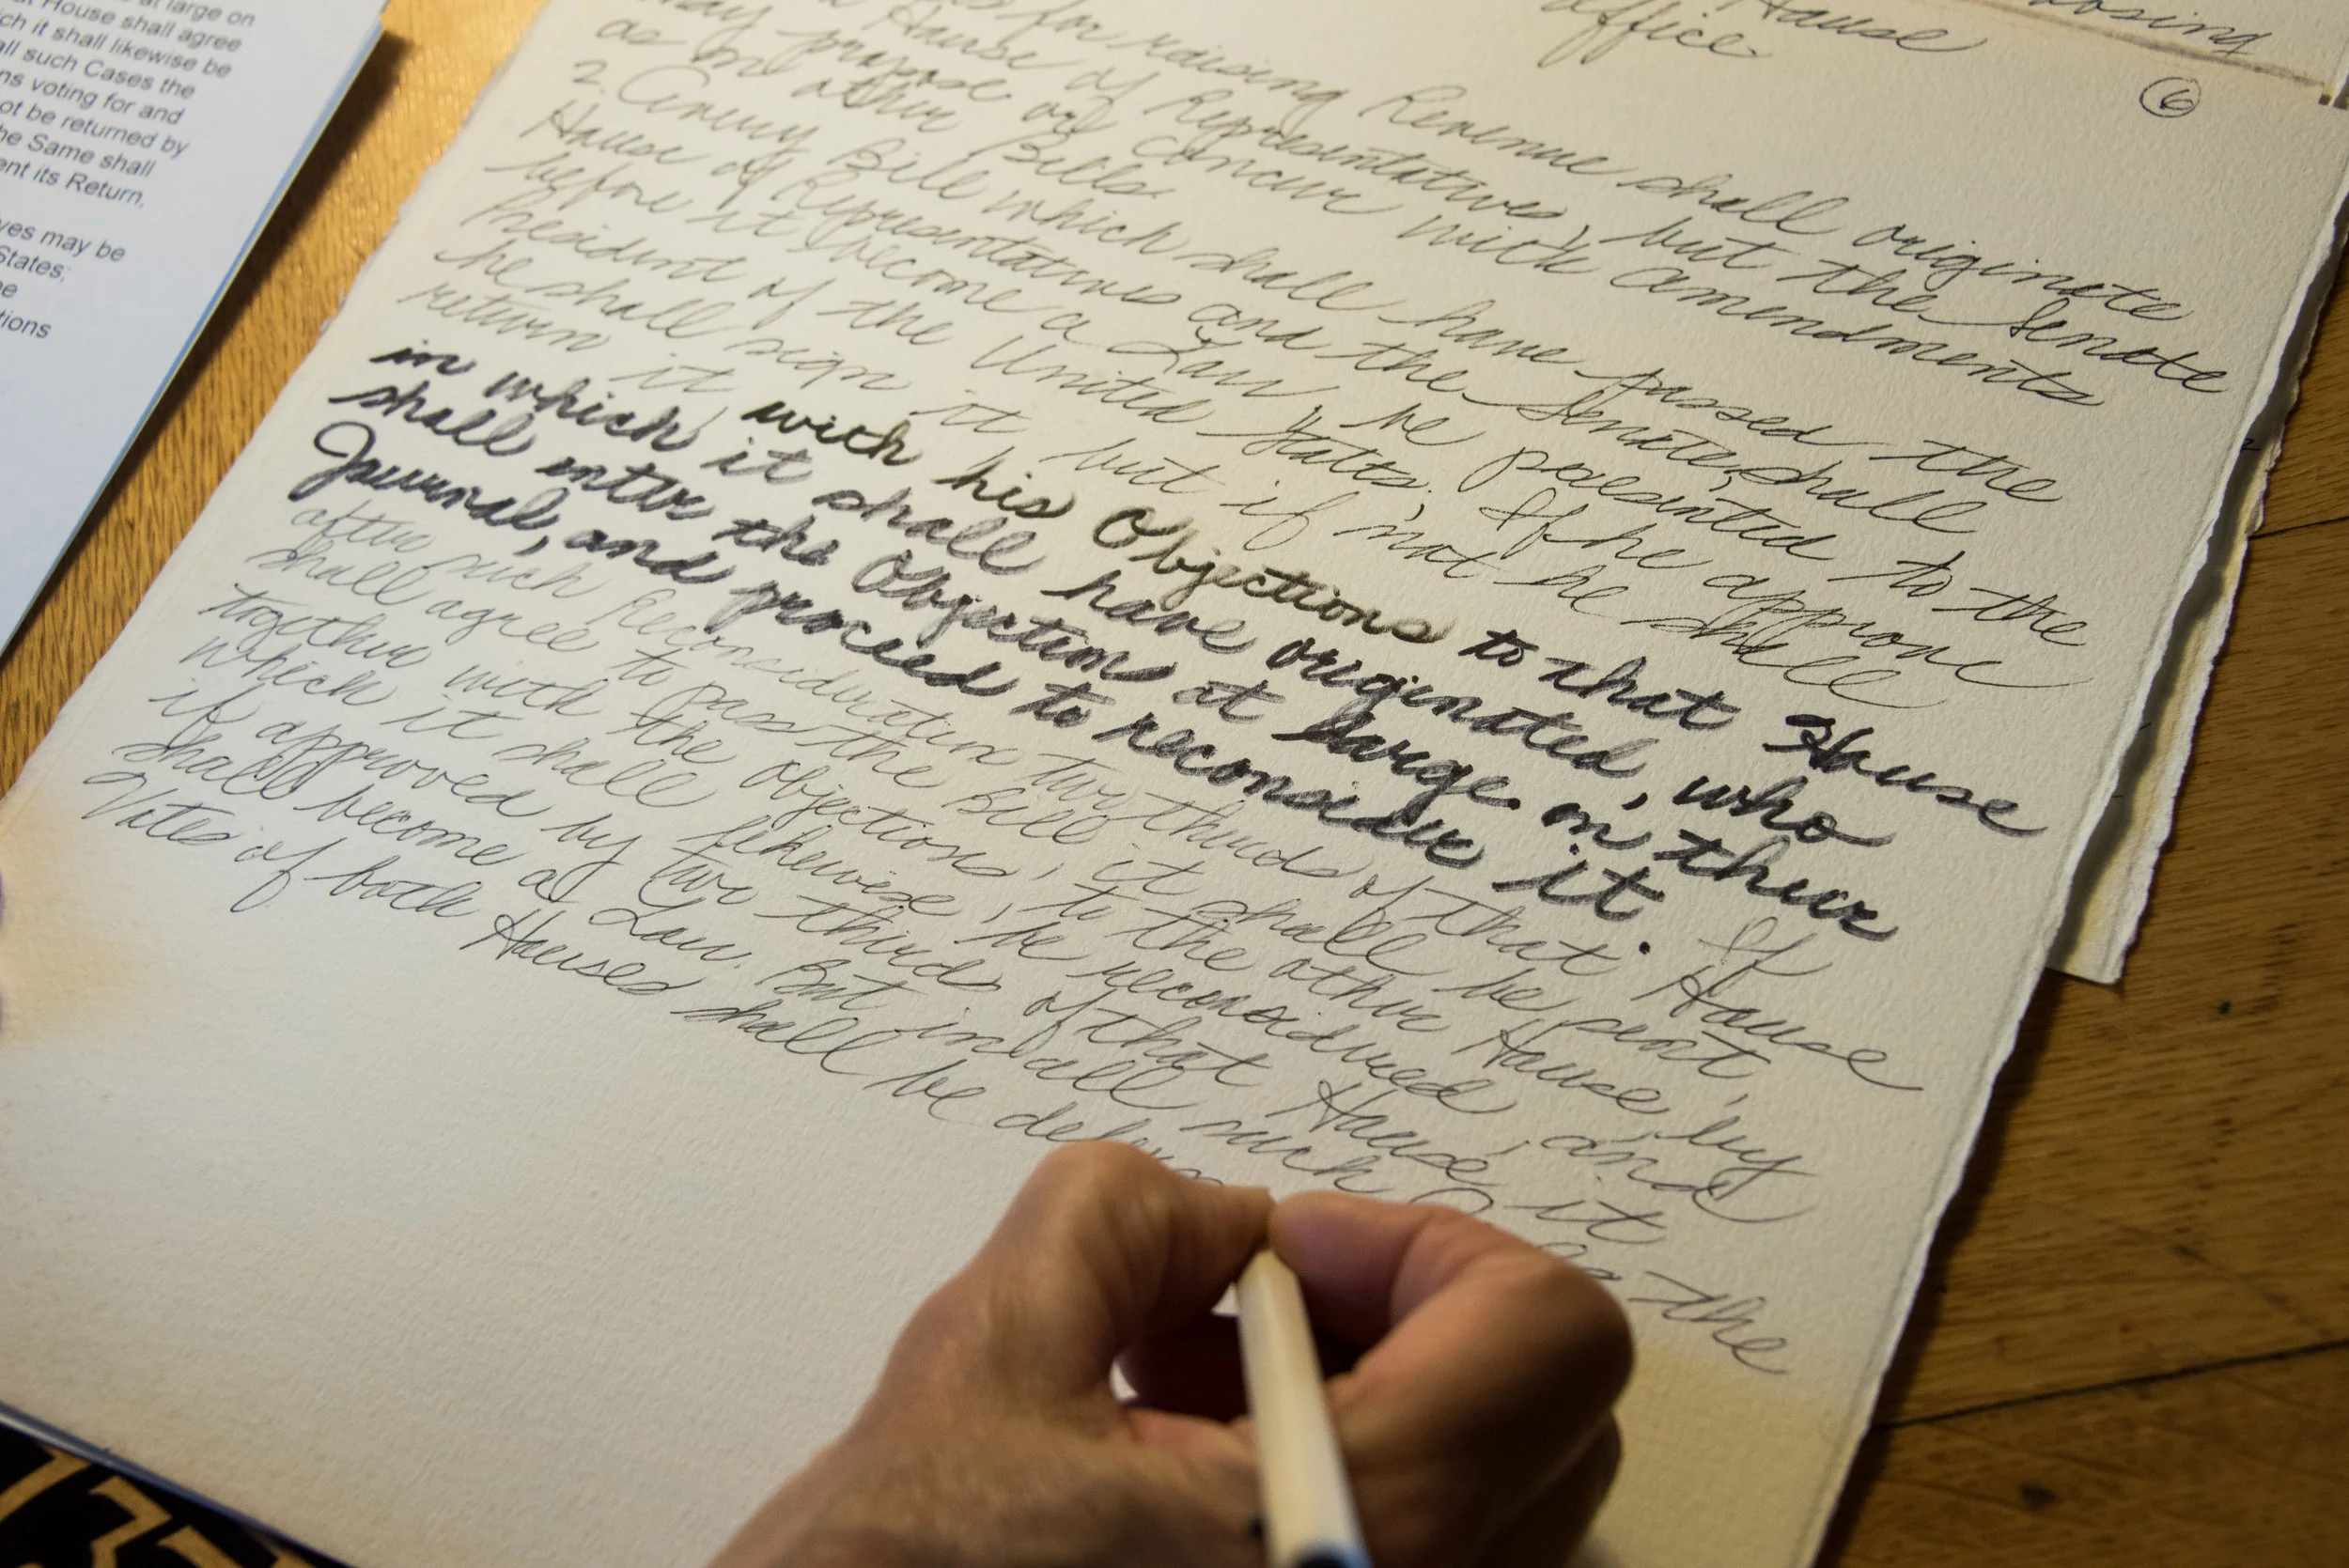 at large on
House shall agree
it shall likewise be
all such Cases the
voting for and
not be returned by
the Same shall
its Return,
may be
States;
osing
House
office
6
for raising Revenue shall originate
House of Representatives; but the Senate
may propose or concur with amendments
as on other Bills.
2. Every Bill which shall have passed the
House of Representatives and the Senate, shall
before it become a Law be presented to the
President of the United States; If he approve
he shall sign it, but if not he shall
return it, with his Objections to that House
in which it shall have originated, who
shall enter the Objections at large on their
Journal, and proceed to reconsider it. If
after such Reconsideration two thirds of that House
shall agree to pass the Bill it shall be sent,
together with the objections, to the other House, by
which it shall likewise, be reconsidered, and
if approved by two thirds of that House, it
shall become a Law. But in all such
Votes of both Houses shall be the